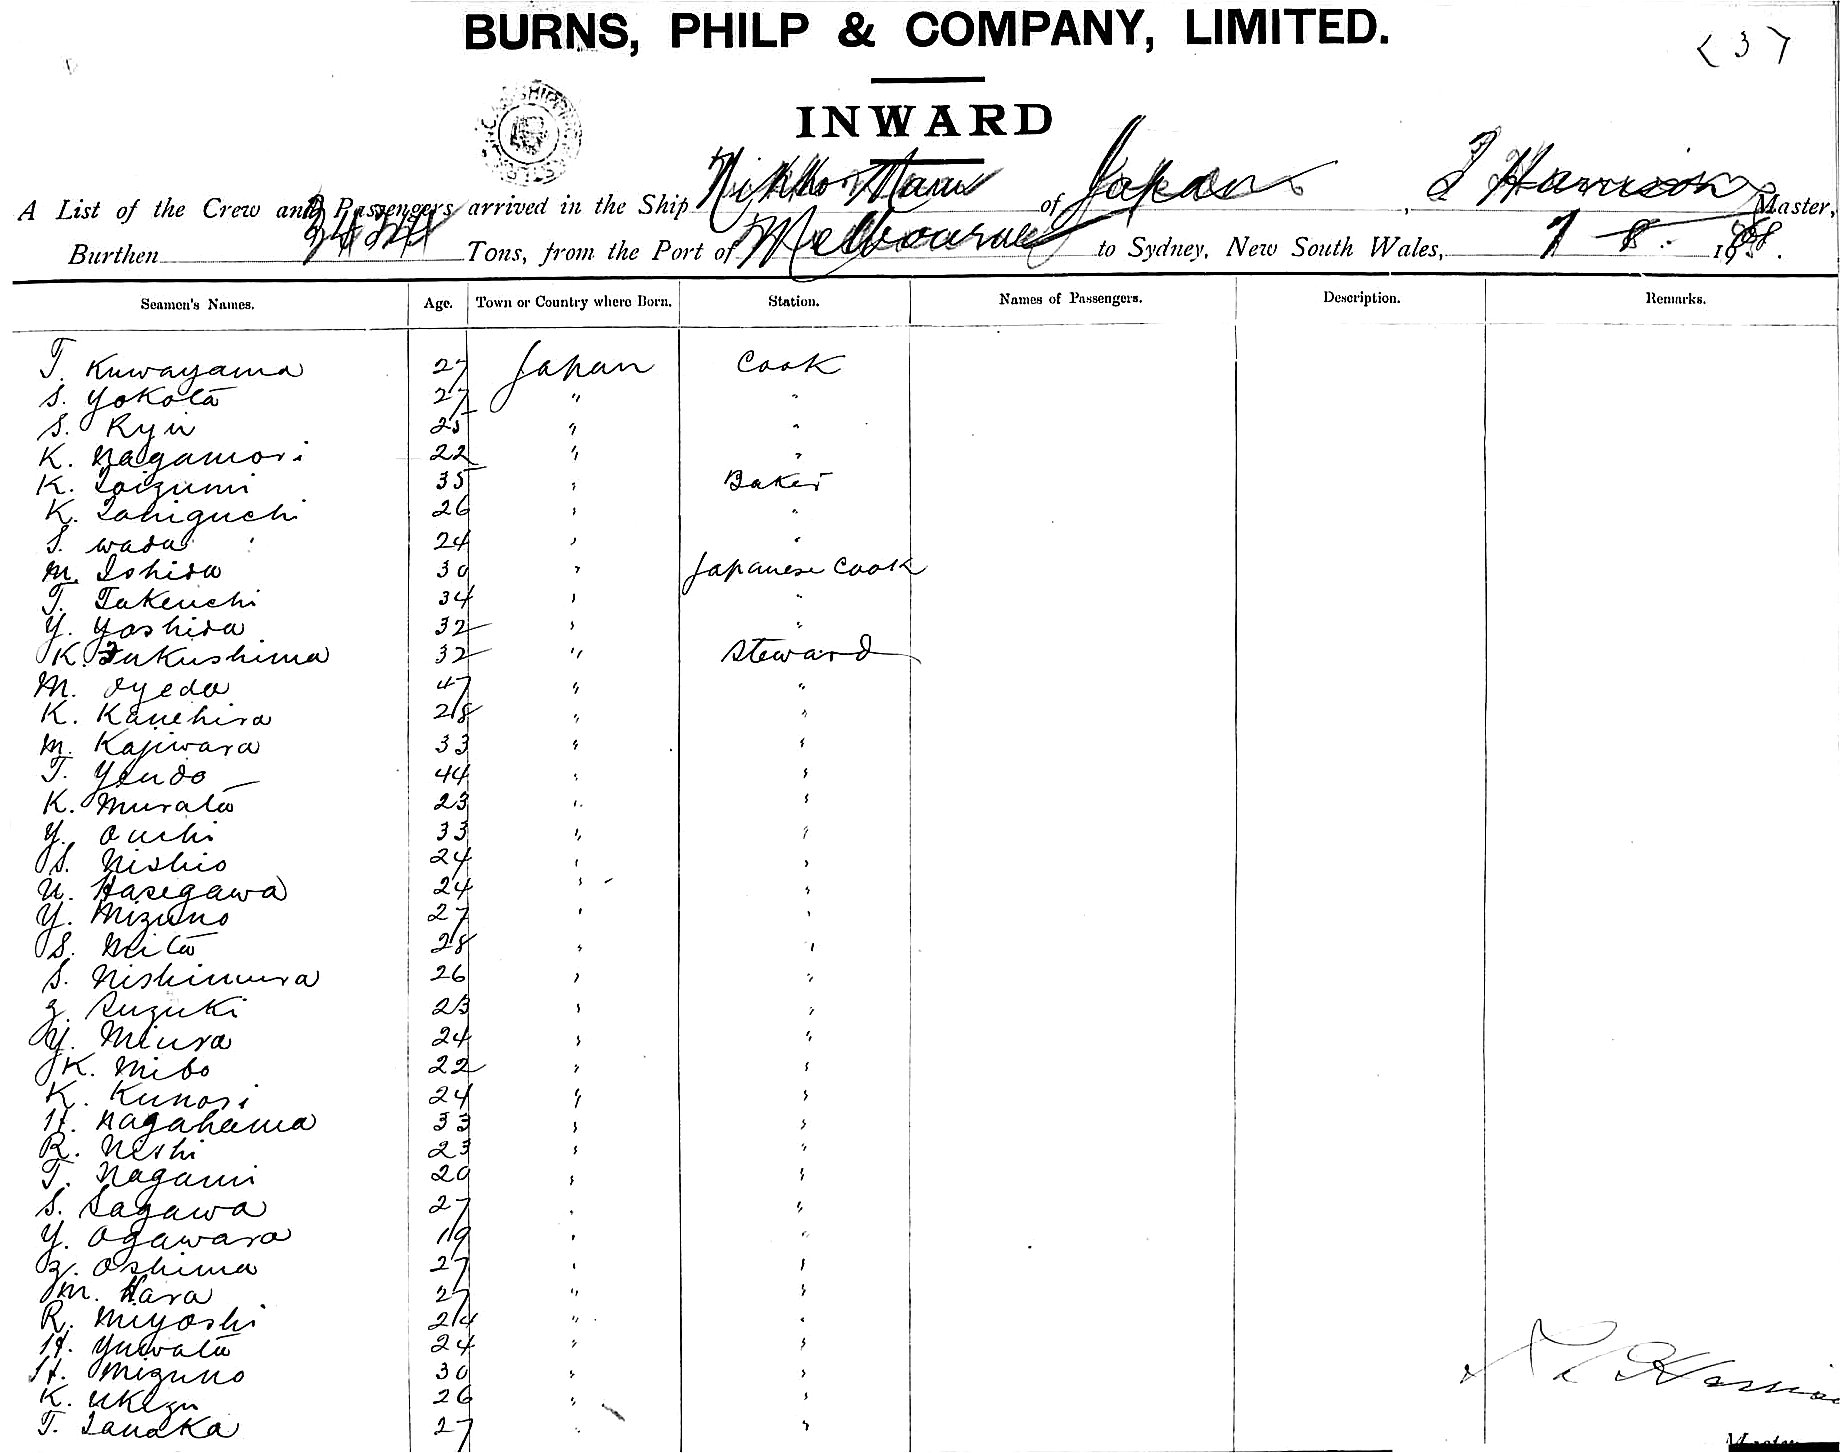 BURNS, PHILP & COMPANY, LIMITED.
<3>
INWARD
A List of the Crew and Passengers arrived in the Ship Nikko Maru of Japan, Harrison Master,
Burthen Tons, from the Port of Melbourne to Sydney, New South Wales, 7-8- 1908.
Seamen's Names. Age. Town or Country where Born. Station. Names of Passengers. Description. Remarks.
T. Kuwayama 27 Japan Cook
S. Yokota 27 " "
S. Ryu 25 " "
K. Nagamori 22 " "
K. Toizumi 35 " Baker
K. Taniguchi 26 " "
S. Wada 24 " "
M. Ishida 30 " Japanese Cook
T. Takeuchi 34 " "
Y. Yoshida 32 " "
K. Fukushima 32 " Steward
M. Oyeda 47 " "
K. Kanehira 28 " "
M. Kajiwara 33 " "
T. Yendo 44 " "
K. Murata 23 " "
Y. Ouchi 33 " "
S. Nishio 24 " "
U. Hasegawa 24 " "
Y. Mizuno 27 " "
S. Mita 28 " "
S. Nishimura 26 " "
Z. Suzuki 23 " "
Y. Miura 24 " "
K. Mibo 22 " "
K. Kunori 24 " "
H. Nagahama 33 " "
R. Nishi 23 " "
T. Nagami 20 " "
S. Sagawa 27 " "
Y. Ogawara 19 " "
Z. Oshima 27 " "
M. Hara 27 " "
R. Miyoshi 24 " "
H. Yuwata 24 " "
H. Mizuno 30 " "
K. Ukezu 26 " "
T. Tanaka 27 " "
Master